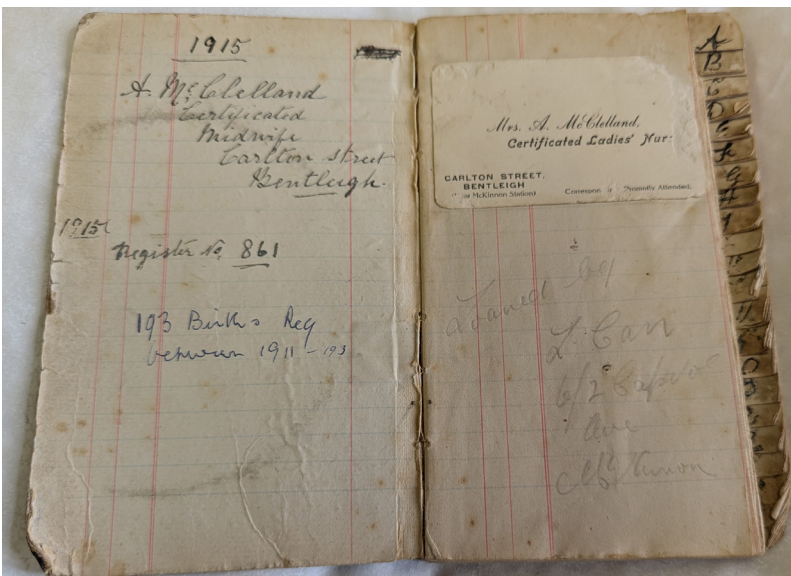 1915
A. McClelland
Certificated
Midwife
Carlton Street
Bentleigh.
1915
Register No. 861
193 Births Reg
between 1911 - 193
Mrs. A. McClelland,
Certificated Ladies' Nur
CARLTON STREET,
BENTLEIGH
McKinnon Station)
Promptly Attended.
Loaned by
L Carr
6/2
Ave
A
B
C
D